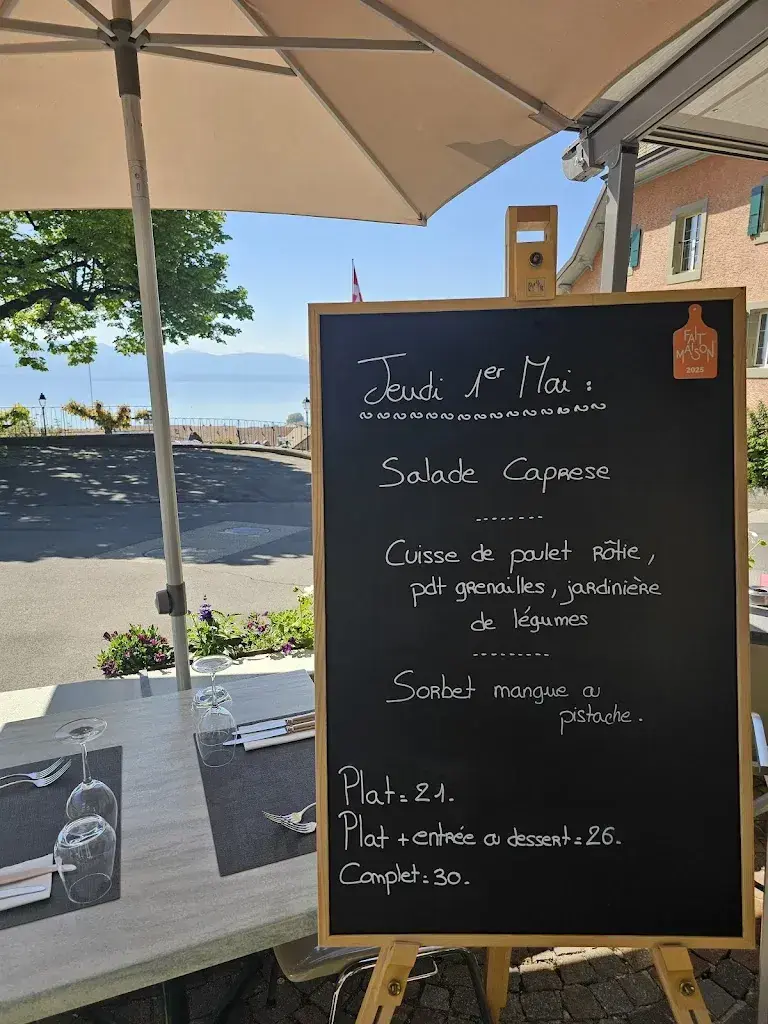 FAIT
MAISON
2025
Jeudi 1er Mai :
Salade Caprese
Cuisse de poulet rôtie,
pdt grenailles, jardinière
de légumes
Sorbet mangue ou
pistache.
Plat = 21.
Plat + entrée ou dessert = 26.
Complet = 30.